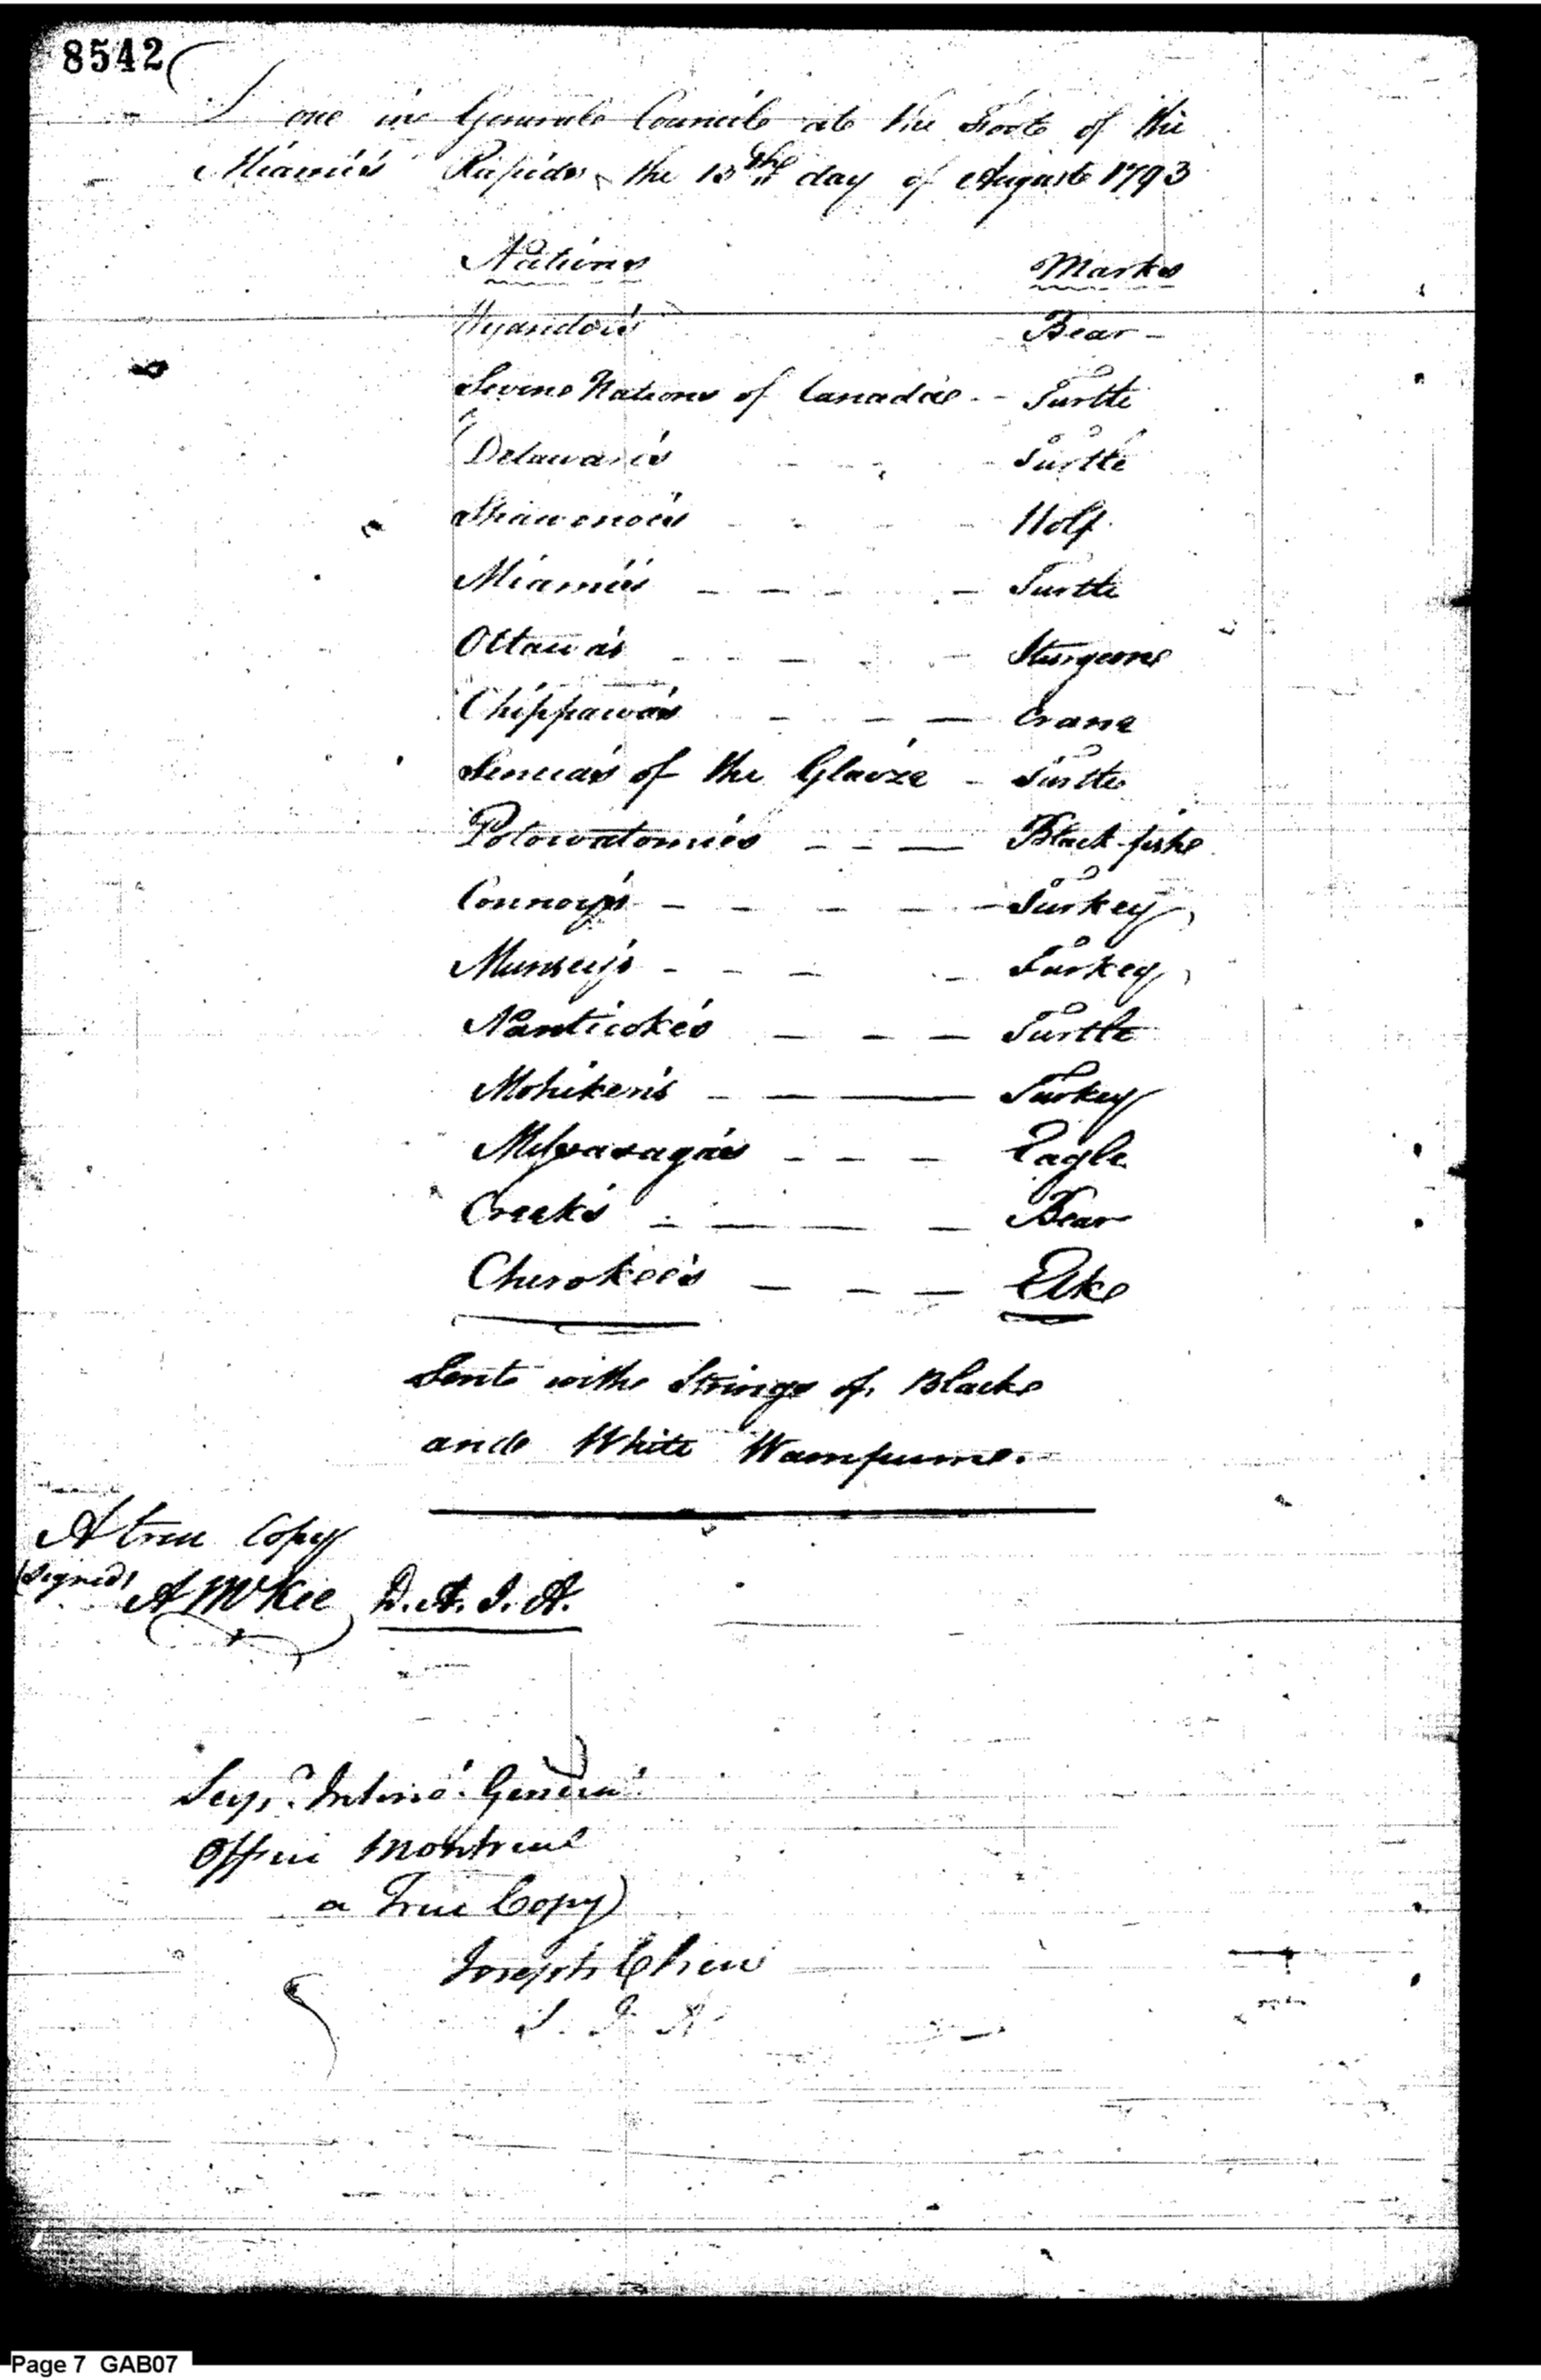 8542
Done in General Council at the Foot of the
Miamis Rapids, the 13th day of August 1793
Nations Marks
Wyandots Bear -
Seven Nations of Canada -- Turtle
Delawares - - - Turtle
Shawenoes - - - - Wolf
Miamis - - - - - Turtle
Ottawas - - - - - Sturgeon
Chippawas - - - Crane
Senecas of the Glaize - Turtle
Potowatomies - - - Black fish
Connoys - - - - - Turkey
Munseys - - - - Turkey
Nanticokes - - - Turtle
Mohikens - - - Turkey
Messasagas - - - Eagle
Creeks - - - - Bear
Cherokees - - - Elk
Sent with Strings of Black
and White Wampum.
A true Copy
(signed) A McKee D.A.I.A.
Office Montreal
a True Copy
Joseph Chew
S. I. A
Page 7 GAB07